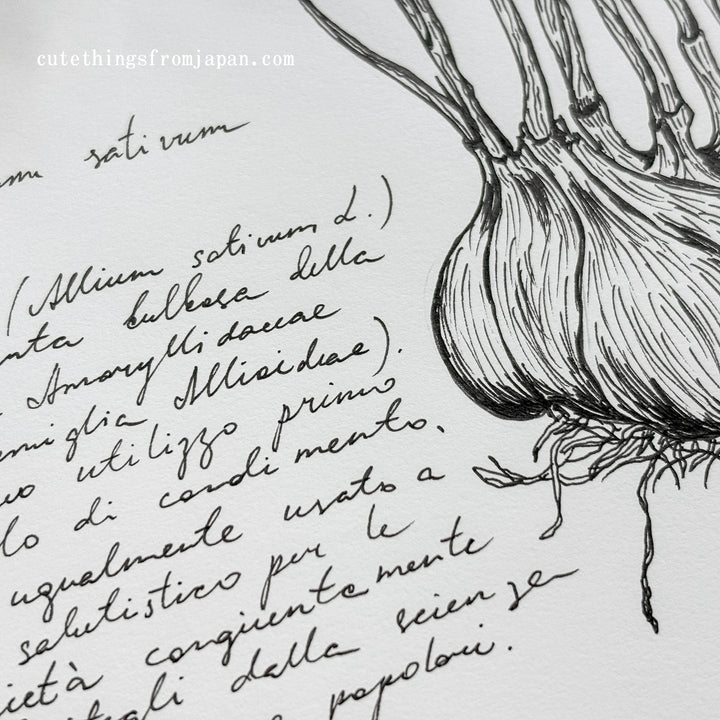 cutethingsfromjapan.com
sativum
(Allium sativum L.)
bulbosa della
Amaryllidaceae
Allioideae).
utilizzo primo
di condimento.
ugualmente usato a
salutistico per le
congiuntamente
dalla scienza
popolari.